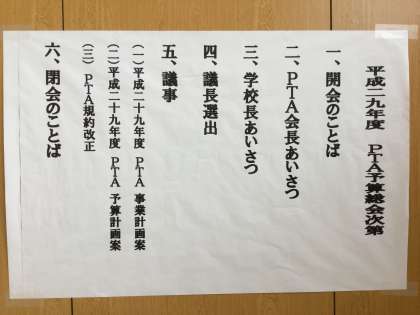 平成二九年度 PTA予算総会次第
一、開会のことば
二、PTA会長あいさつ
三、学校長あいさつ
四、議長選出
五、議事
(一)平成二十九年度 PTA 事業計画案
(二)平成二十九年度 PTA 予算計画案
(三)PTA規約改正
六、閉会のことば